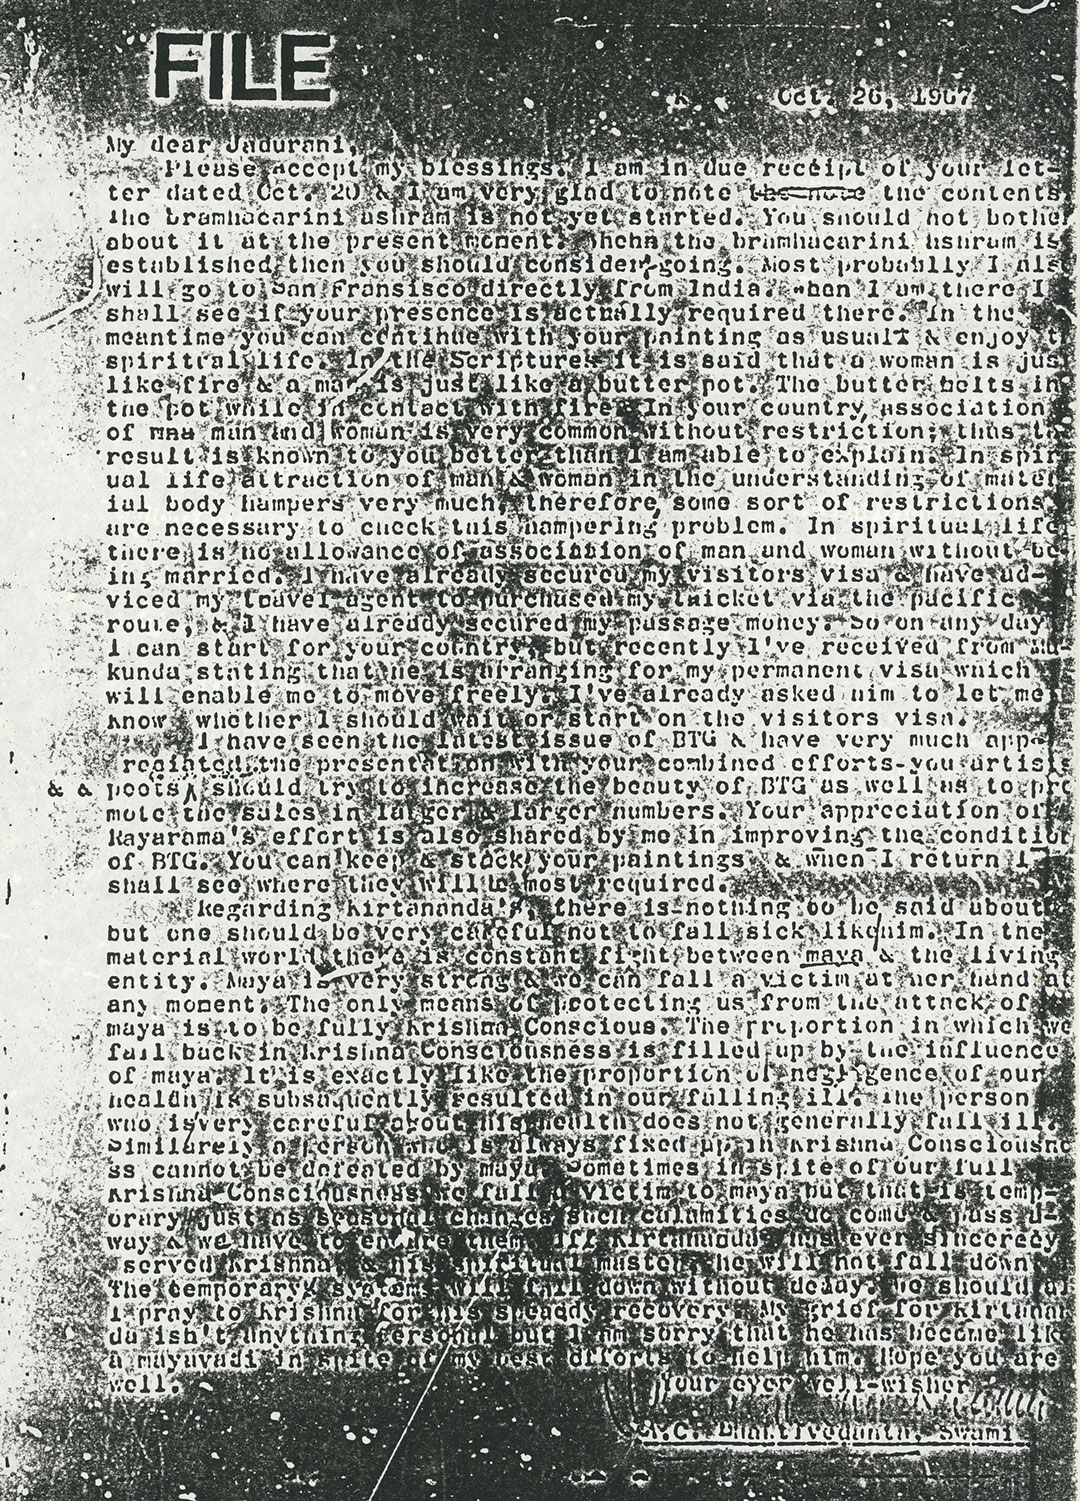 FILE
Oct. 26, 1967
My dear Jadurani,
Please accept my blessings. I am in due receipt of your let-
ter dated Oct. 20 & I am very glad to note the note the contents
The bramhacarini ashram is not yet started. You should not bothe
about it at the present moment. the bramhacarini ashram is
established then you should consider going. Most probablly I als
will go to San Fransisco directly from India. When I am there I
shall see if your presence is actually required there. In the
meantime you can continue with your painting as usual & enjoy t
spiritral life. In the Scriptures it is said that a woman is jus
like fire & a man is just like a butter pot. The butter belts in
the pot while in contact with fire. In your country association
of man and woman is very common without restriction; thus th
result is known to you better than I am able to explain. In spir
ual life attraction of man & woman in the understanding of mater
ial body hampers very much, therefore, some sort of restrictions
are necessary to check this hampering problem. In spiritual life
there is no allowance of association of man and woman without be
ing married. I have already secured my visitors visa & have ad-
viced my travel agent to purchased my taicket via the pacific
route, & I have already secured my passage money. So on any day
I can start for your country, but recently I've received from Mu-
kunda stating that he is arranging for my permanent visa which
will enable me to move freely. I've already asked him to let me
know whether I should wait or start on the visitors visa.
I have seen the latest issue of BTG & have very much app
reciated the presentation with your combined efforts-you artis
& & poets, should try to increase the beauty of BTG as well as to pro
mote the sales in larger & larger numbers. Your appreciation of
Rayarama's effort is also shared by me in improving the condition
of BTG. You can keep & stock your paintings & when I return I
shall see where they will be most required.
Regarding Kirtananda's, there is nothing to be said about
but one should be very careful not to fall sick like him. In the
material world there is constant fight between maya & the living
entity. Maya is very strong & we can fall a victim at her hand at
any moment. The only means of protecting us from the attack of
maya is to be fully Krishna Conscious. The proportion in which we
fall back in Krishna Consciousness is filled up by the influence
of maya. It is exactly like the proportion of negligence of our
health is subsuquently resulted in our falling ill. The person
who is very careful about his health does not generally fall ill.
Similarely a person who is always fixed up in Krishna Consciousne
ss cannot be defeated by maya. Sometimes in spite of our full
Krishna Consciousness we fall a victim to maya but that is temp-
orary just as seasonal changes such calamities do come & pass a-
way & we have to endure them. If Kirtananda has ever sincerecy
served Krishna & his spiritual master, he will not fall down.
The temporary systems will fall down without decay. We should al
I pray to Krishna for his steady recovery. My grief for Kirtanan
da ish't anything personal but I am sorry that he has become lik
a mayavadi in spite of my best efforts to help him. Hope you are
well.
Your ever well-wisher
A.C. Bhaktivedanta, Swami